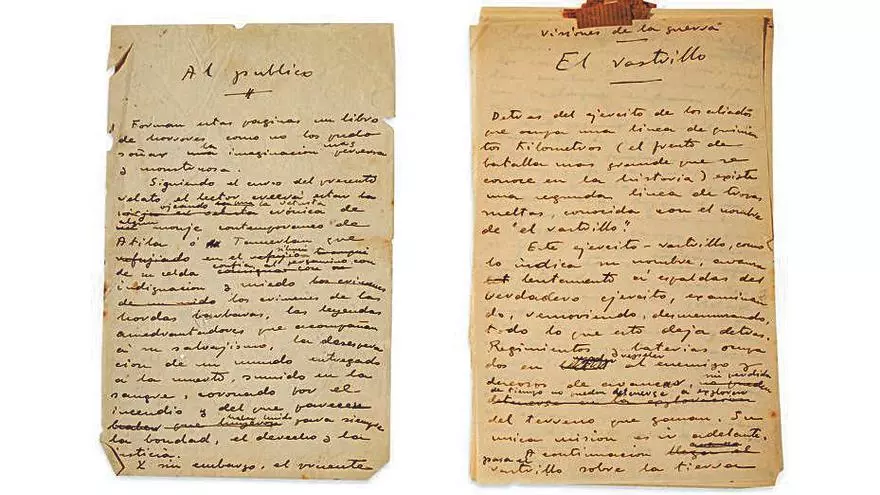 Al publico
Forman estas paginas un libro
de horrores como no los pudo
soñar la imaginacion mas perversa
y monstruosa.
Siguiendo el curso del presente
relato, el lector creerá estar
hojeando la vetusta
crónica de
algun monje contemporaneo de
Atila ó Tamerlan que
refugiado en el silencio
de su celda confia al pergamino con
indignacion y miedo los crimenes
los crimenes de las
hordas barbaras, las leyendas
amedrentadoras que acompañan
á su salvajismo, la desespera
cion de un mundo entregado
á la muerte, sumido en la
sangre, coronado por el
incendio y del que parecen
haber huido para siempre
la bondad, el derecho y la
justicia.
Y sin embargo, el presente
Visiones de la guerra
El rastrillo
Detras del ejercito de los aliados
que ocupa una linea de quinien
tos Kilometros (el frente de
batalla mas grande que se
conoce en la historia) existe
una segunda linea de tropas
sueltas, conocida con el nombre
de "el rastrillo".
Este ejercito-rastrillo, como
lo indica su nombre, avanza
lentamente á espaldas del
verdadero ejercito, examinan
do, removiendo, desmenuzando,
todo lo que este deja detras.
Regimientos y baterias ocupa
dos en al enemigo y
deseosos de avanzar, sin perdida
de tiempo no pueden detenerse á explorar
del terreno que ganan. Su
unica mision es ir adelante.
A continuacion
pasa el
rastrillo sobre la tierra